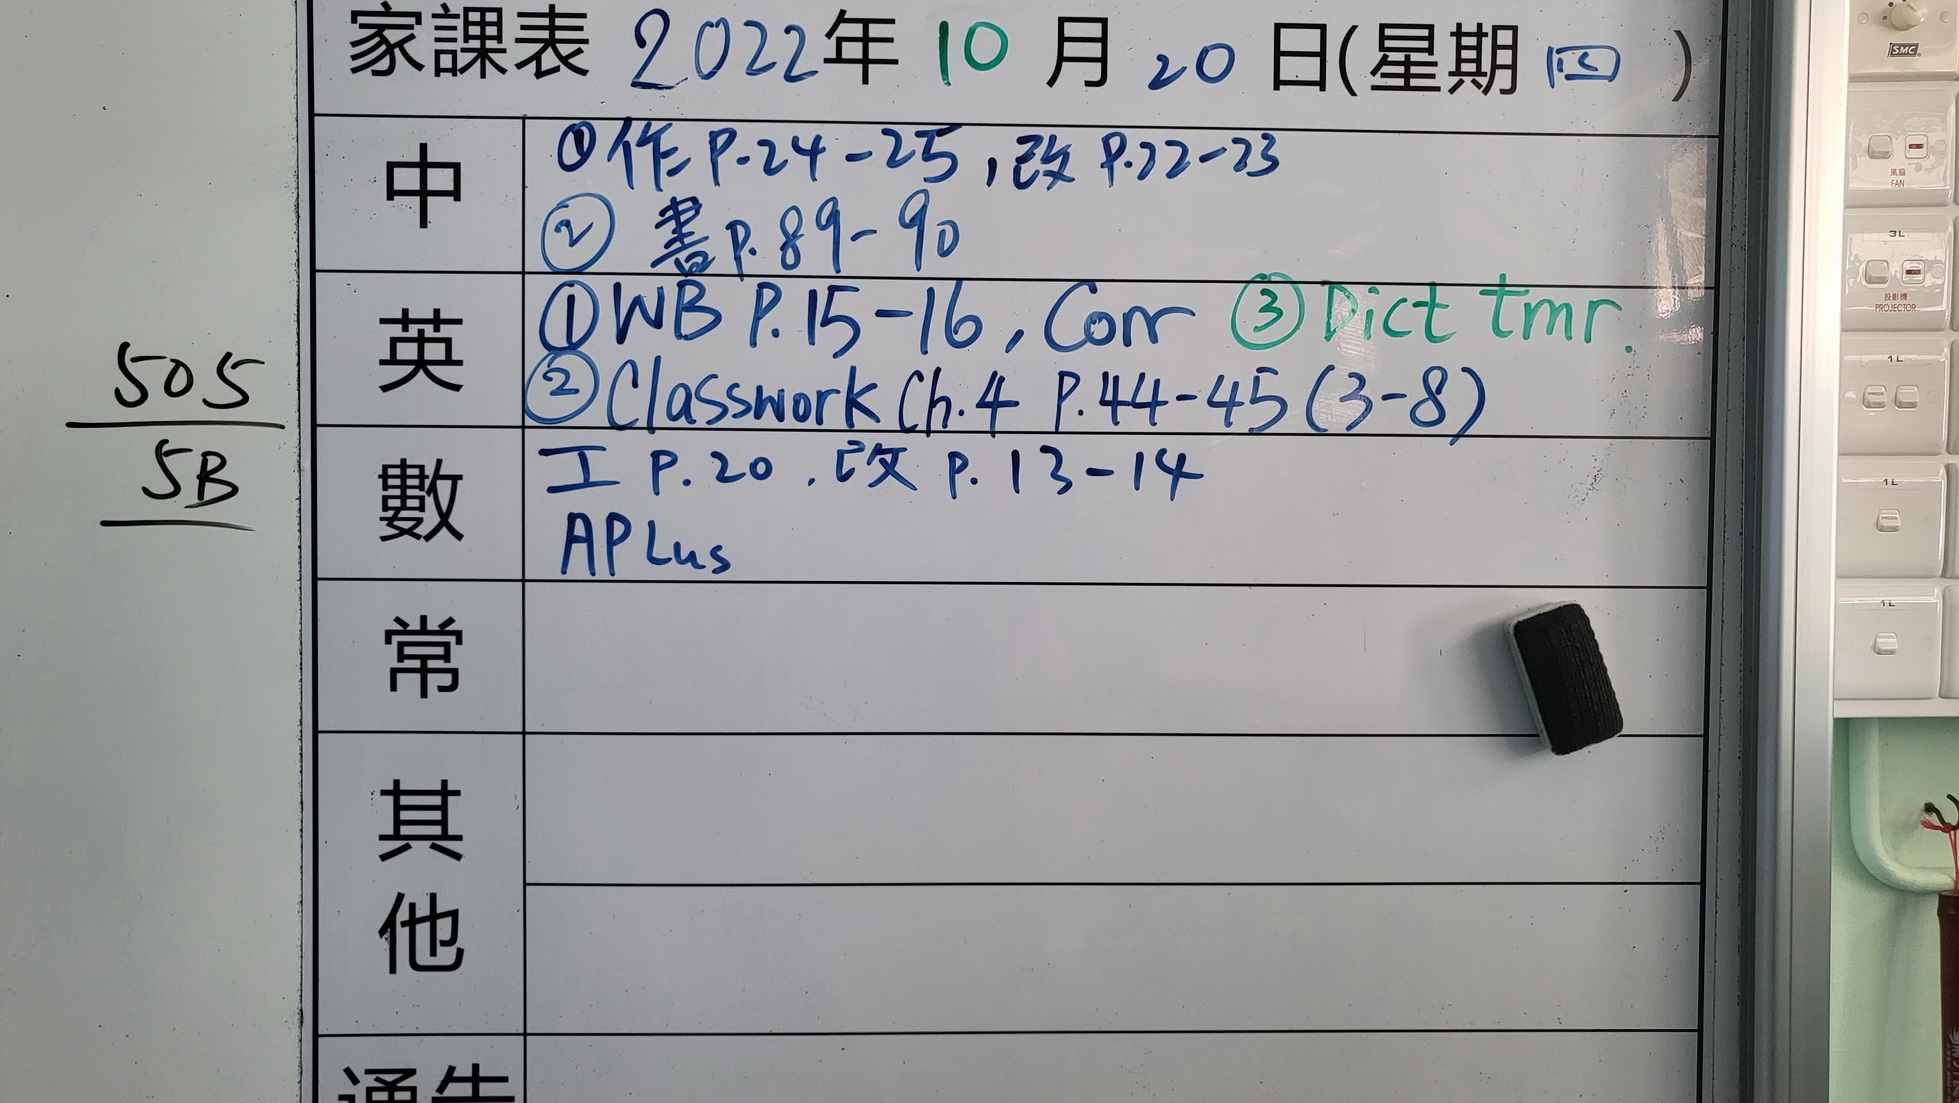 家課表 2022年 10 月 20 日(星期 四 )
中
①作P.24-25,改P.22-23
②書P.89-90
英
①WB P.15-16, Corr ③Dict tmr.
②Classwork Ch.4 P.44-45(3-8)
數
工 P.20,改 P.13-14
APLus
常
其他
通告
505
5B
SMC
風扇
FAN
3L
投影機
PROJECTOR
1L
1L
1L